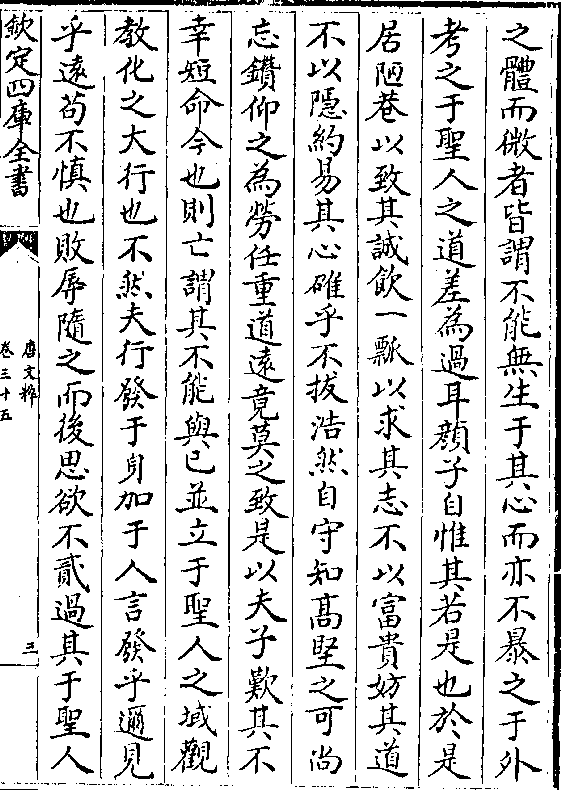 之體而微者皆謂不能無生于其心而亦不暴之于外
考之于聖人之道差為過耳顔子自惟其若是也於是
居陋巷以致其誠飲一瓢以求其志不以富貴妨其道
不以隱約易其心確乎不拔浩然自守知髙堅之可尚
忘鑽仰之為勞任重道遠竟莫之致是以夫子歎其不
幸短命今也則亡謂其不能與己並立于聖人之域觀
教化之大行也不然夫行發于身加于人言發乎邇見
乎遠茍不慎也敗辱隨之而後思欲不貳過其于聖人
欽定四庫全書
唐文粹
卷三十五
三